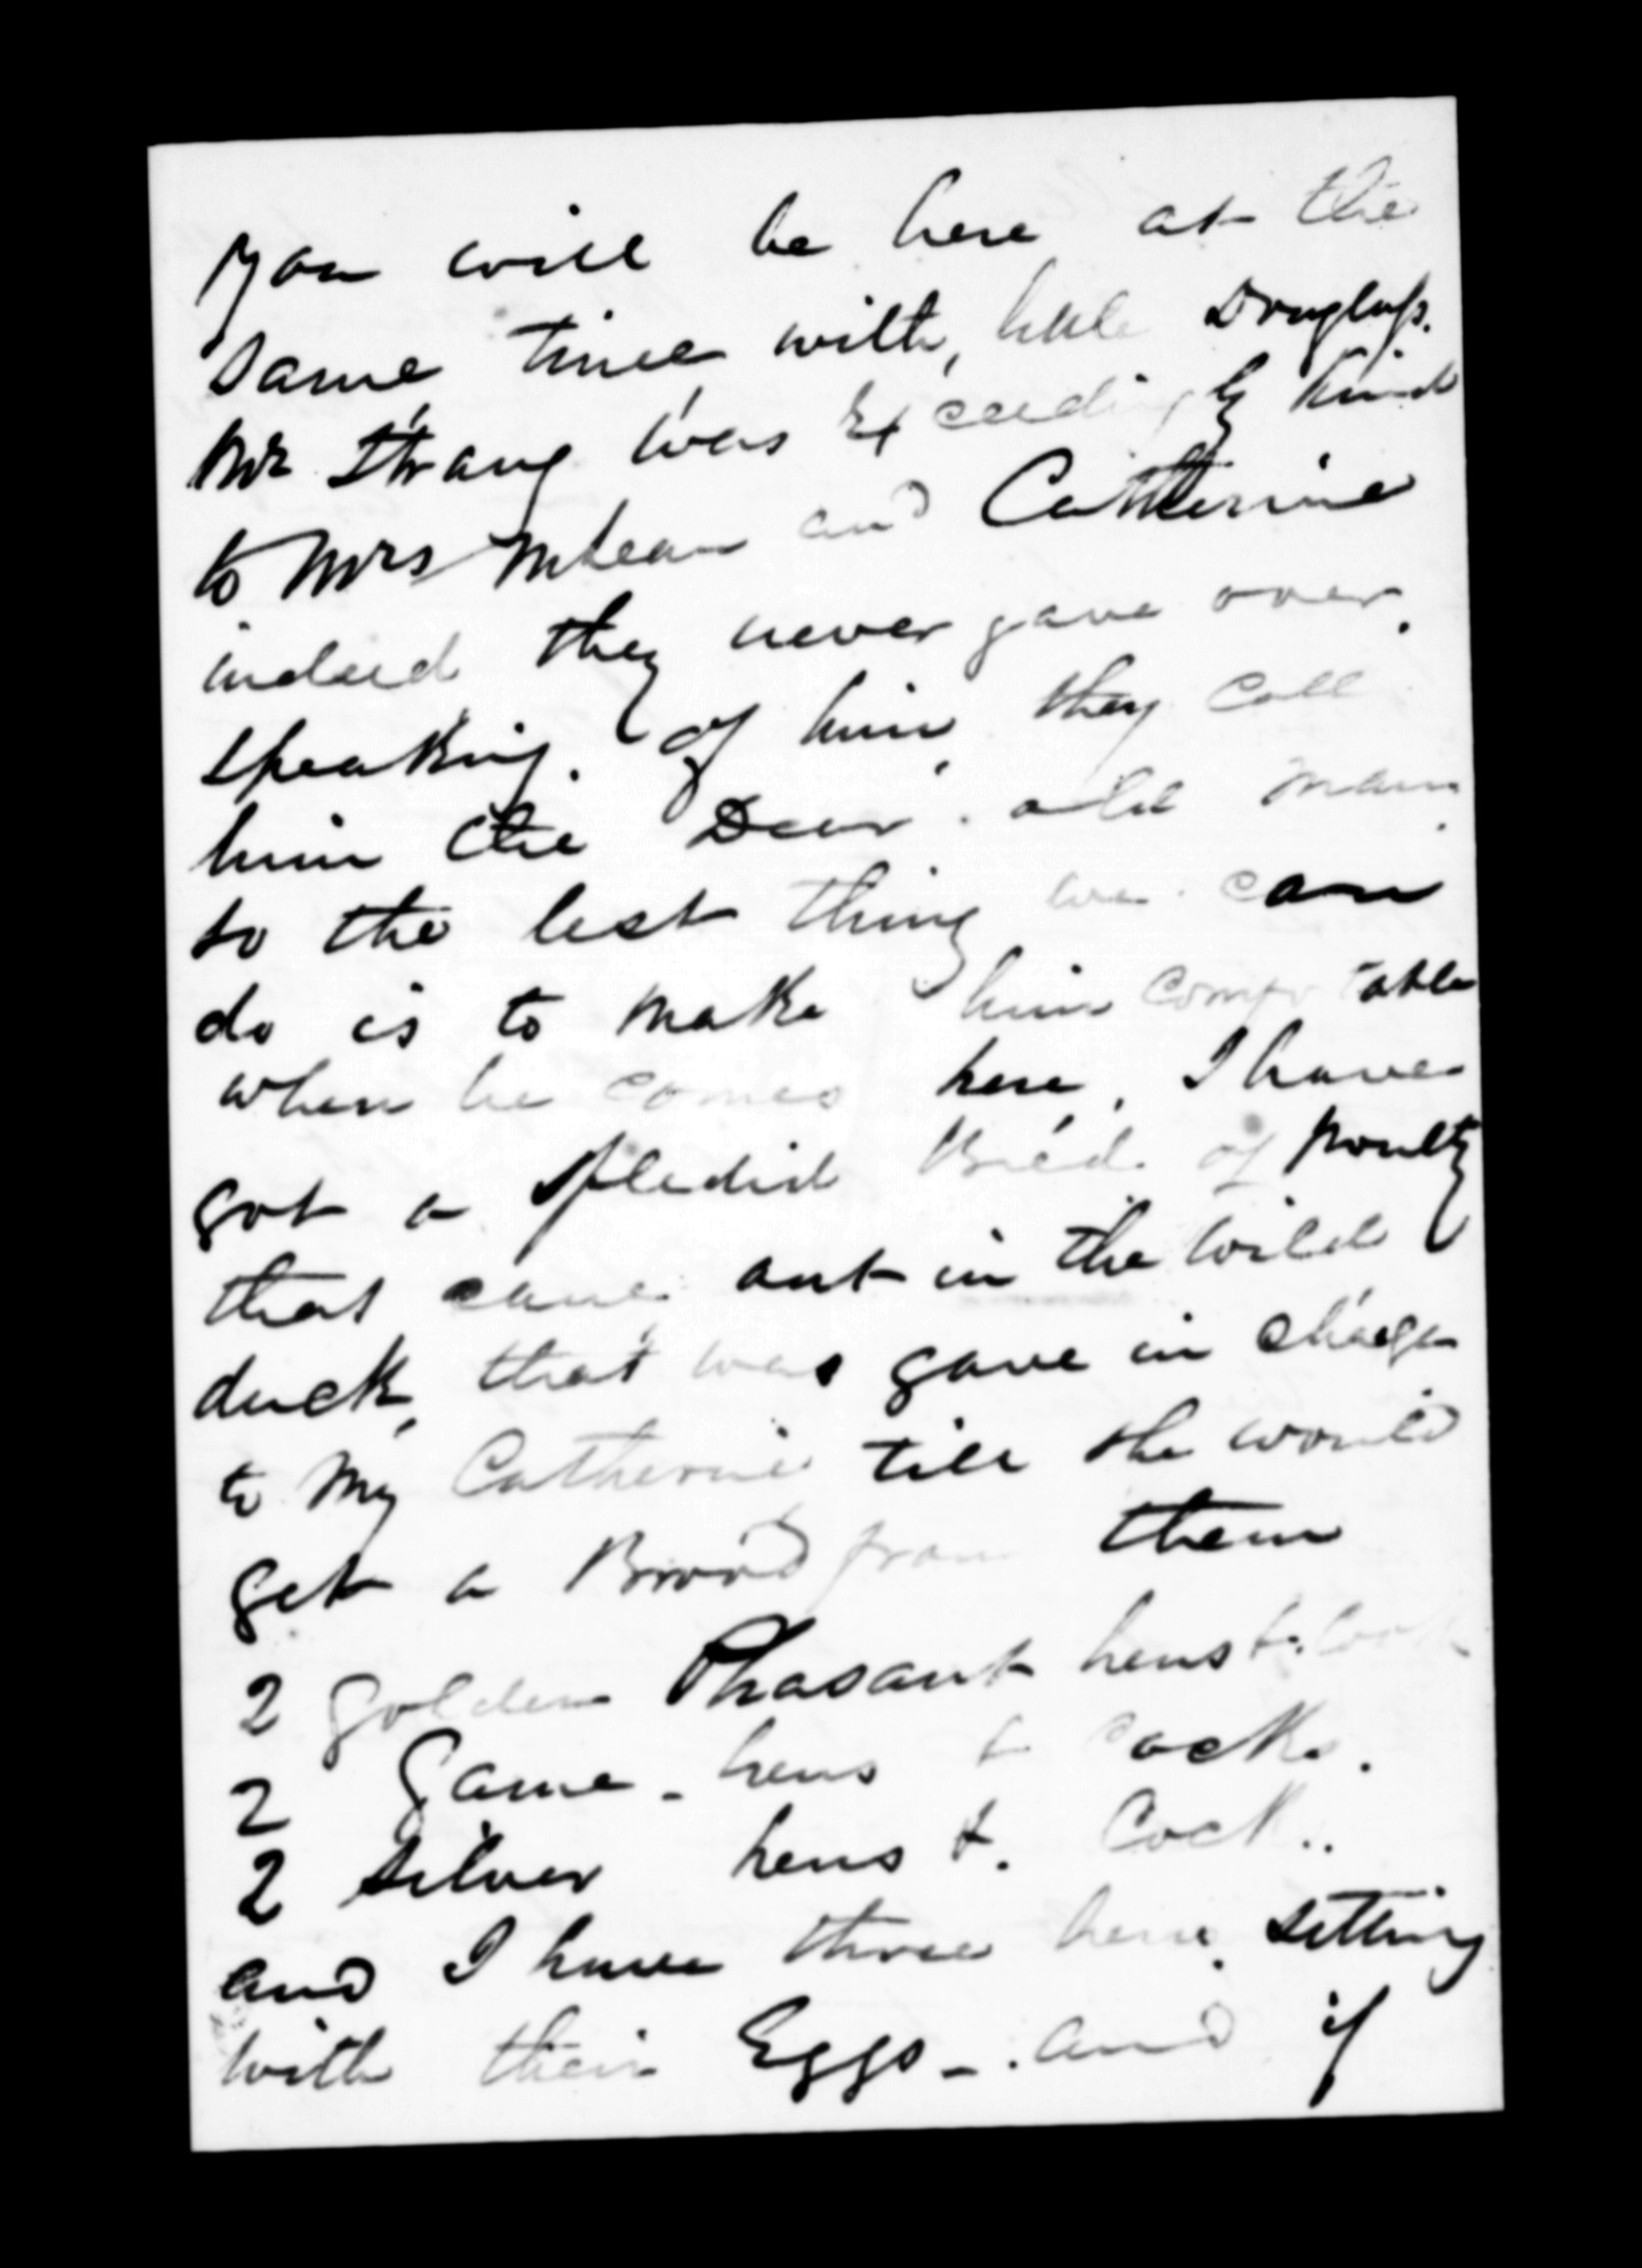 you will be here at the
same time with, little Douglass.
Mr Strang was Exceedingly kind
to Mrs McLean and Catherine
indeed they never gave over.
speaking. of him, they call
him the Dear. old man
so the lest thing we can
do is to make him comfortable
when he comes here, I have
got a spledid Bréed. of poulty
that came out in the Wild
duck, that was gave in cháege
to My Catherine till she would
get a Brood from them
2 golden Phasant hens &. Cock
2 Game - hens & cocks.
2 silver hens &. Cock..
and I have three hens. setting
with their Eggs - . and if